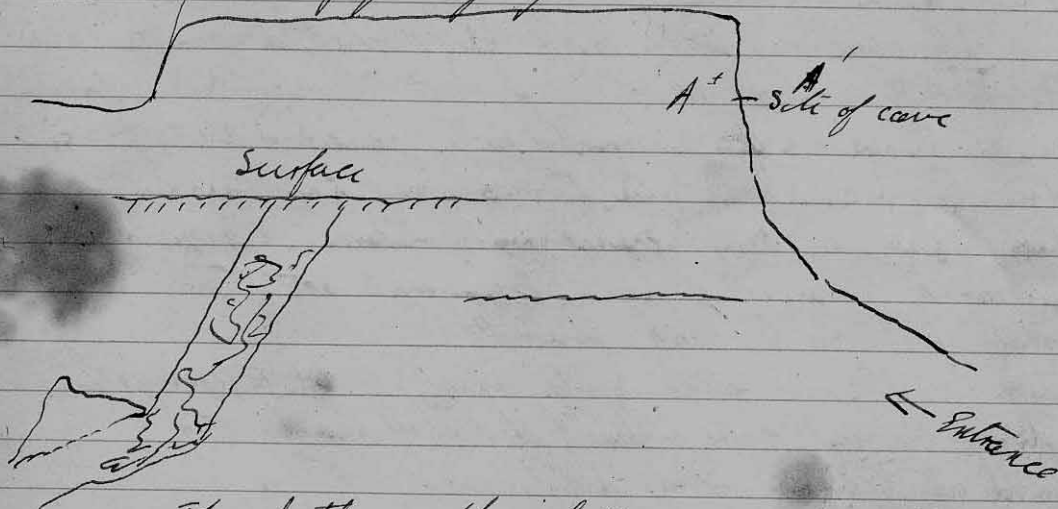 A'
A
Site of cave
Surface
← Entrance